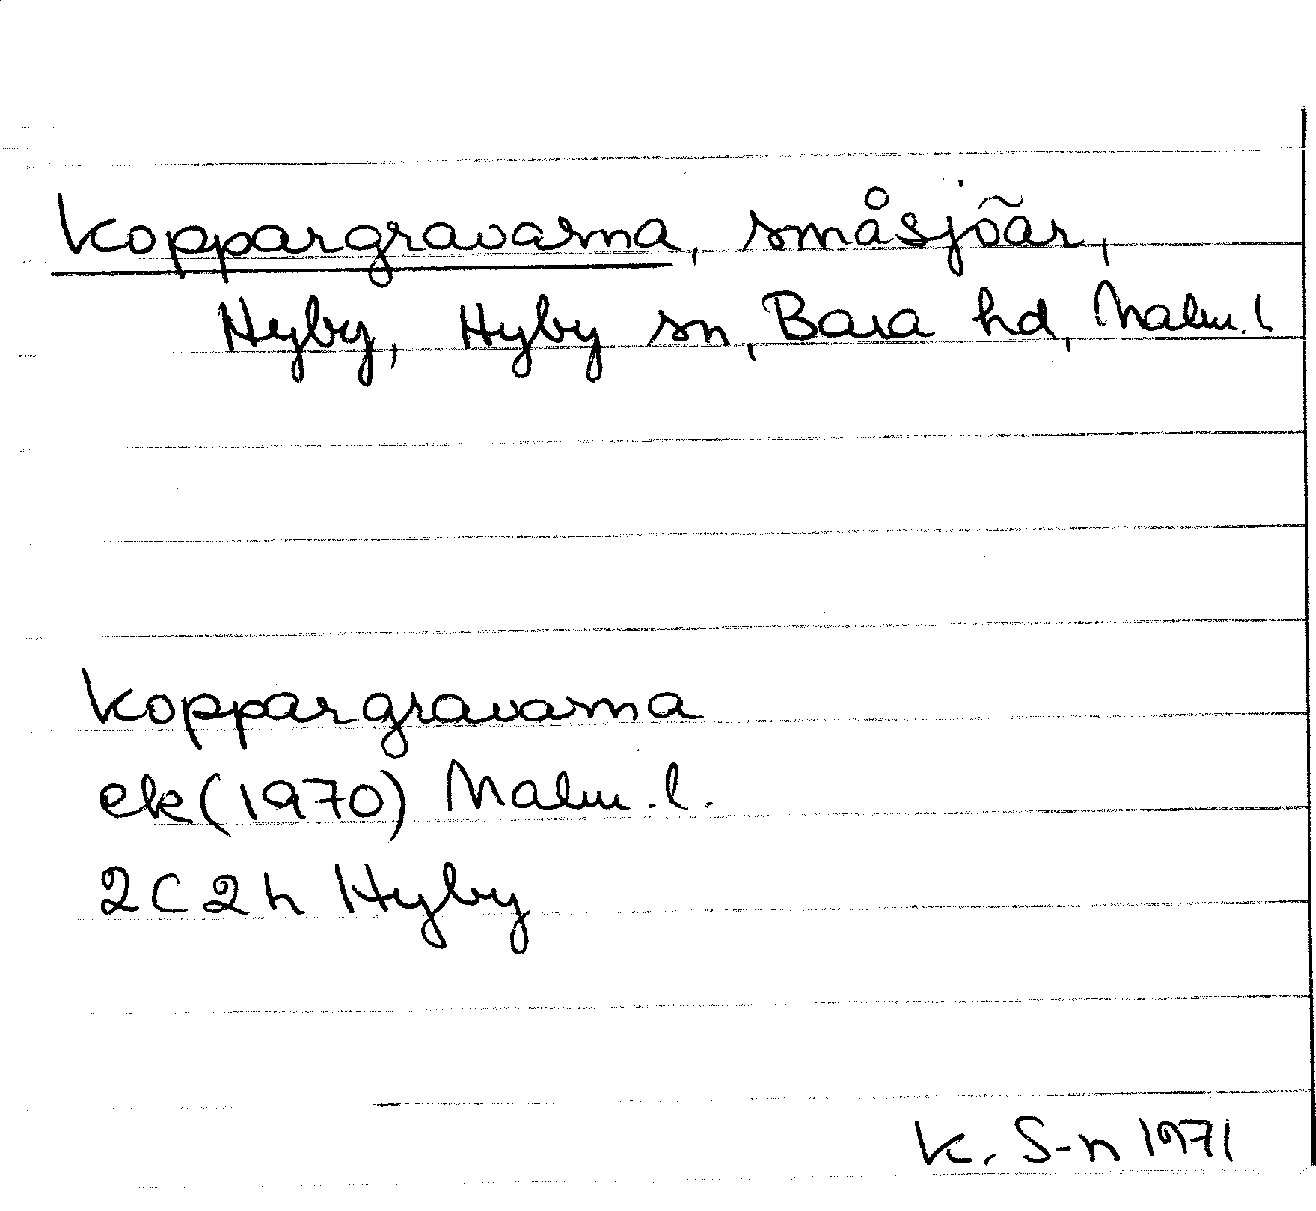 Koppargravarna, småsjöar,
Hyby, Hyby sn, Bara hd, Malm. l
Koppargravarna
ek (1970) Malm. l.
2C 2h Hyby
K. S-n 1971